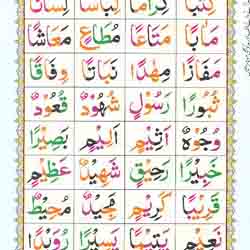 كِتٰبًا كِرَامًا لِبَاسًا لِسَانًا
مَاٰبًا مَتَاعًا مُطَاعٍ مَعَاشًا
مَفَازًا مِهٰدًا نَبَاتًا وِفَاقًا
ثُبُورًا رَسُوْلٍ شُهُوْدٌ قُعُوْدٌ
وُجُوْهٌ اَثِيْمٍ اَلِيْمٍ بَصِيْرًا
خَبِيْرًا رَحِيْقٍ شَهِيْدٌ عَظِيْمٍ
قَرِيْبًا كَرِيْمٍ مَجِيْدٌ مُحِيْطٌ
نَعِيْمٍ يَتِيْمًا يَسِيْرًا رُوَيْدًا